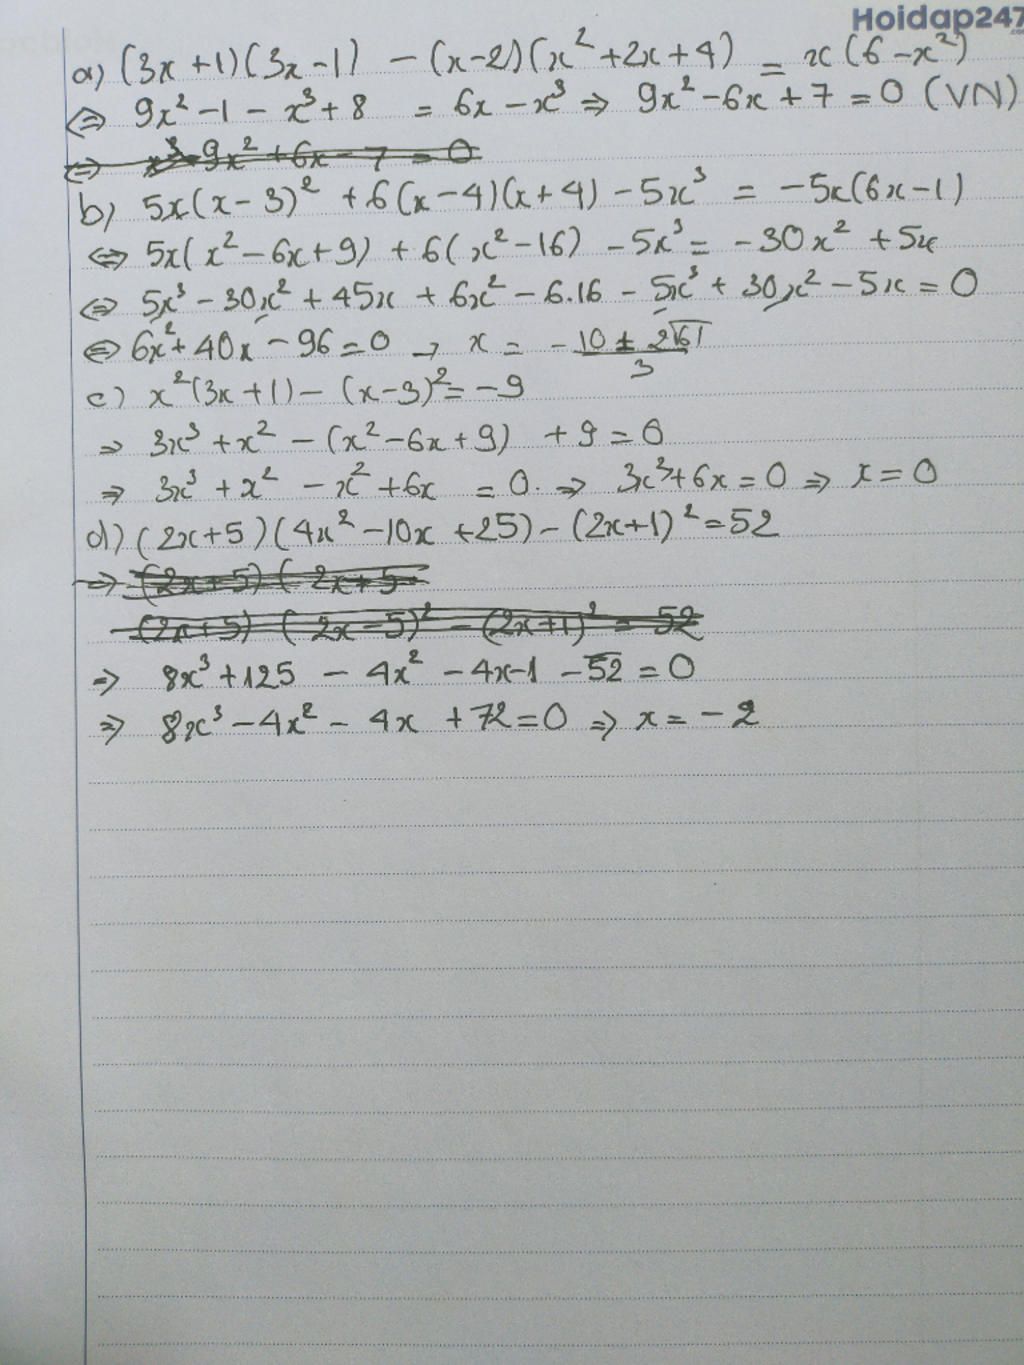 Hoidap247
.com
a) (3x+1)(3x-1) - (x-2)(x²+2x+4) = x(6-x²)
<=> 9x²-1-x³+8 = 6x-x³ => 9x²-6x+7=0 (VN)
<=> x³-9x²+6x-7=0
b) 5x(x-3)² + 6(x-4)(x+4) - 5x³ = -5x(6x-1)
<=> 5x(x²-6x+9) + 6(x²-16) - 5x³ = -30x²+5x
<=> 5x³-30x²+45x+6x²-6.16-5x³+30x²-5x=0
<=> 6x²+40x-96=0 → x = -10±2√61/3
c) x²(3x+1)-(x-3)²=-9
=> 3x³+x²-(x²-6x+9)+9=0
=> 3x³+x²-x²+6x=0. => 3x³+6x=0 => x=0
d) (2x+5)(4x²-10x+25)-(2x+1)²=52
=> (2x+5)(2x+5
(2x+5)(2x-5)²-(2x+1)²=52
=> 8x³+125-4x²-4x-1-52=0
=> 8x³-4x²-4x+72=0 => x=-2